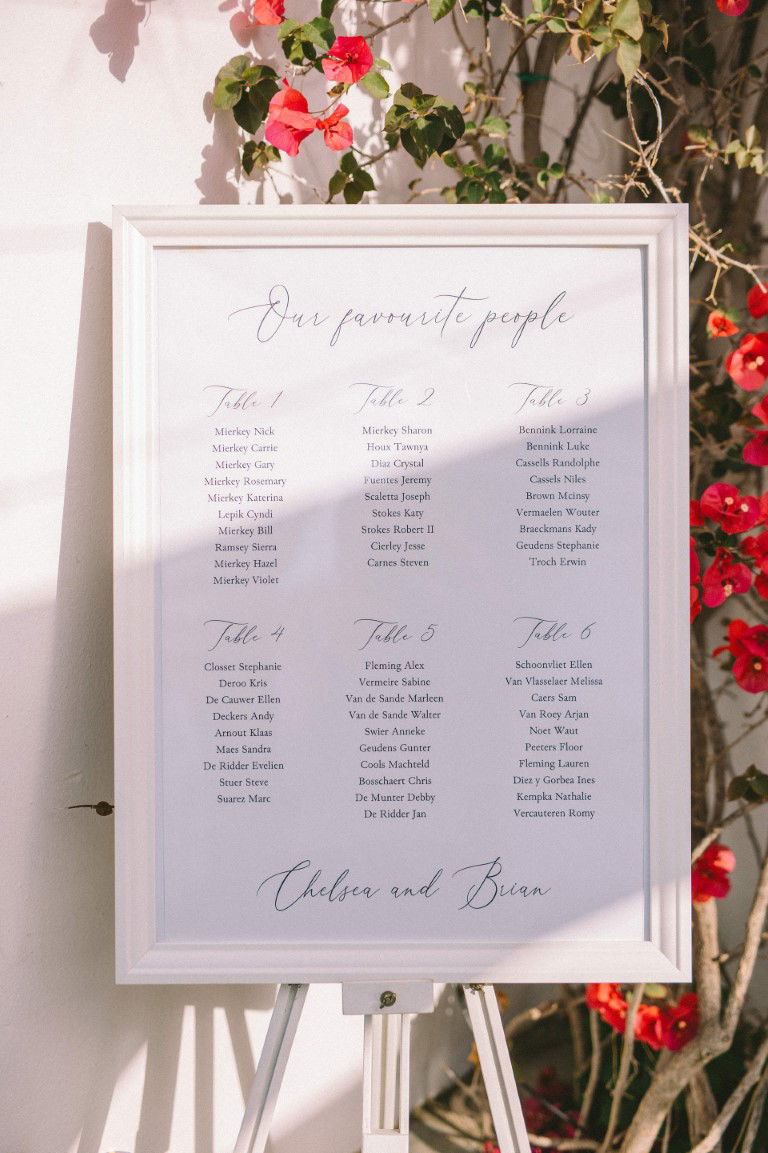 Our favourite people
Table 1
Mierkey Nick
Mierkey Carrie
Mierkey Gary
Mierkey Rosemary
Mierkey Katerina
Lepik Cyndi
Mierkey Bill
Ramsey Sierra
Mierkey Hazel
Mierkey Violet
Table 2
Mierkey Sharon
Houx Tawnya
Diaz Crystal
Fuentes Jeremy
Scaletta Joseph
Stokes Katy
Stokes Robert II
Cierley Jesse
Carnes Steven
Table 3
Bennink Lorraine
Bennink Luke
Cassells Randolphe
Cassels Niles
Brown Mcinsy
Vermaelen Wouter
Braeckmans Kady
Geudens Stephanie
Troch Erwin
Table 4
Closset Stephanie
Deroo Kris
De Cauwer Ellen
Deckers Andy
Arnout Klaas
Maes Sandra
De Ridder Evelien
Stuer Steve
Suarez Marc
Table 5
Fleming Alex
Vermeire Sabine
Van de Sande Marleen
Van de Sande Walter
Swier Anneke
Geudens Gunter
Cools Machteld
Bosschaert Chris
De Munter Debby
De Ridder Jan
Table 6
Schoonvliet Ellen
Van Vlasselaer Melissa
Caers Sam
Van Roey Arjan
Noet Waut
Peeters Floor
Fleming Lauren
Diez y Gorbea Ines
Kempka Nathalie
Vercauteren Romy
Chelsea and Brian